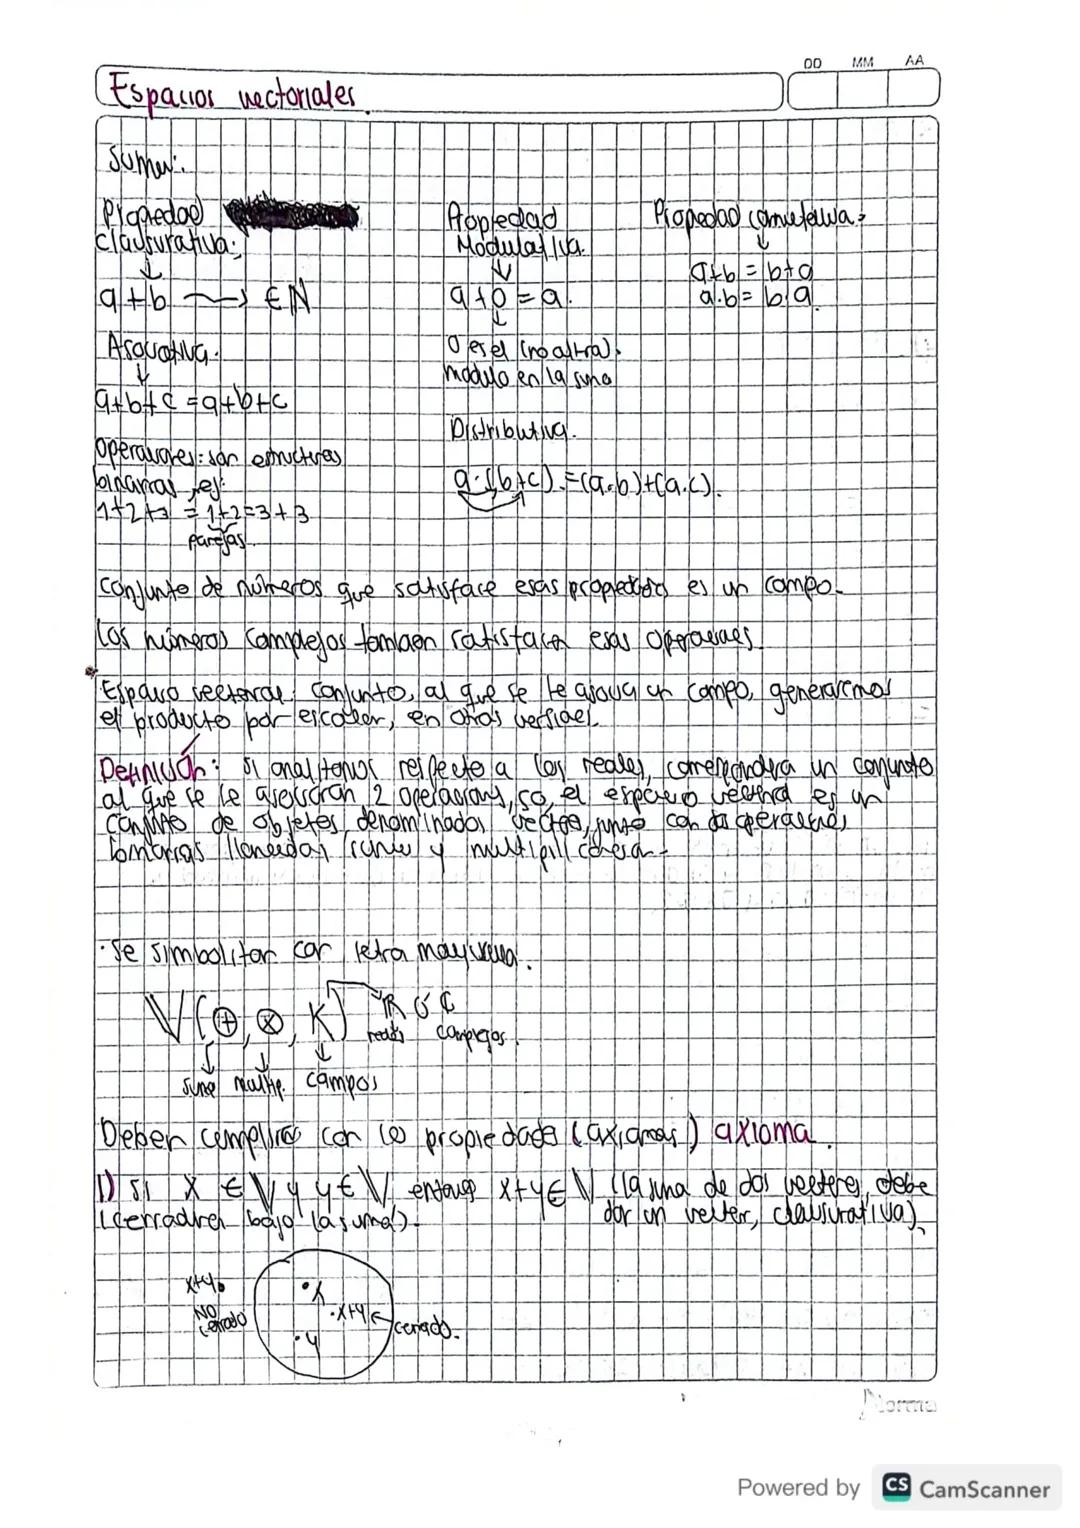 DD MM AA
Espacios vectoriales
Suma:
Propiedad
clausurativa:
a+b → ∈ N
Propiedad
Modulativa.
a+0=a.
0 es el (no altra).
modulo en la suma
Propiedad conmutativa:
a+b = b+a
a.b = b.a
Asociativa.
a+b+c = a+b+c
Distributiva.
a.(b+c) = (a.b)+(a.c).
Operaciones: son estructuras
binarias, ej:
1+2+3 = 1+2=3+3
parejas
Conjunto de números que satisface esas propiedades es un campo.
Los números complejos también satisfacen esas operaciones.
Espacio vectorial conjunto, al que se le asocia un campo, generaremos
el producto por escalar, en otras
Definición: si analizamos respecto a los reales, correspondera un conjunto
al que se le asociaran 2 operaciones, so, el espacio vectorial es un
conjunto de objetos, denominados vectores, junto con dos operaciones
binarias llamadas suma y
· Se simbolizan con letra mayuscula.
V(⊕, ⊗, K) ℝ ó ℂ
reales complejos.
suma multip. campos
Deben cumplir con 10 propiedades (axiomas) axioma.
1) Si x ∈ V y y ∈ V, entonces x+y ∈ V (la suma de dos vectores, debe
(cerradura bajo la suma). dar un vector, clausurativa).
x+y
NO
cerrado
·x
·x+y
·y
cerrado.
Norma
Powered by CS CamScanner